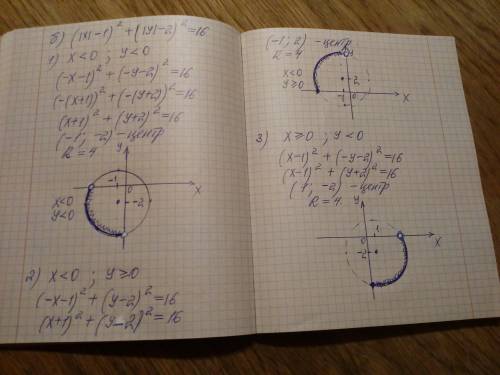 б) (|x|-1)² + (|y|-2)² = 16
1) x<0 ; y<0
(-x-1)² + (-y-2)² = 16
(-(x+1))² + (-(y+2))² = 16
(x+1)² + (y+2)² = 16
(-1; -2) - центр
R = 4
y
-1
0
x
x<0
y<0
-2
2) x<0 ; y≥0
(-x-1)² + (y-2)² = 16
(x+1)² + (y-2)² = 16
(-1; 2) - центр
R = 4
y
x<0
y≥0
2
-1
0
x
3) x≥0 ; y<0
(x-1)² + (-y-2)² = 16
(x-1)² + (y+2)² = 16
(1; -2) - центр
R = 4
y
0
1
x
-2